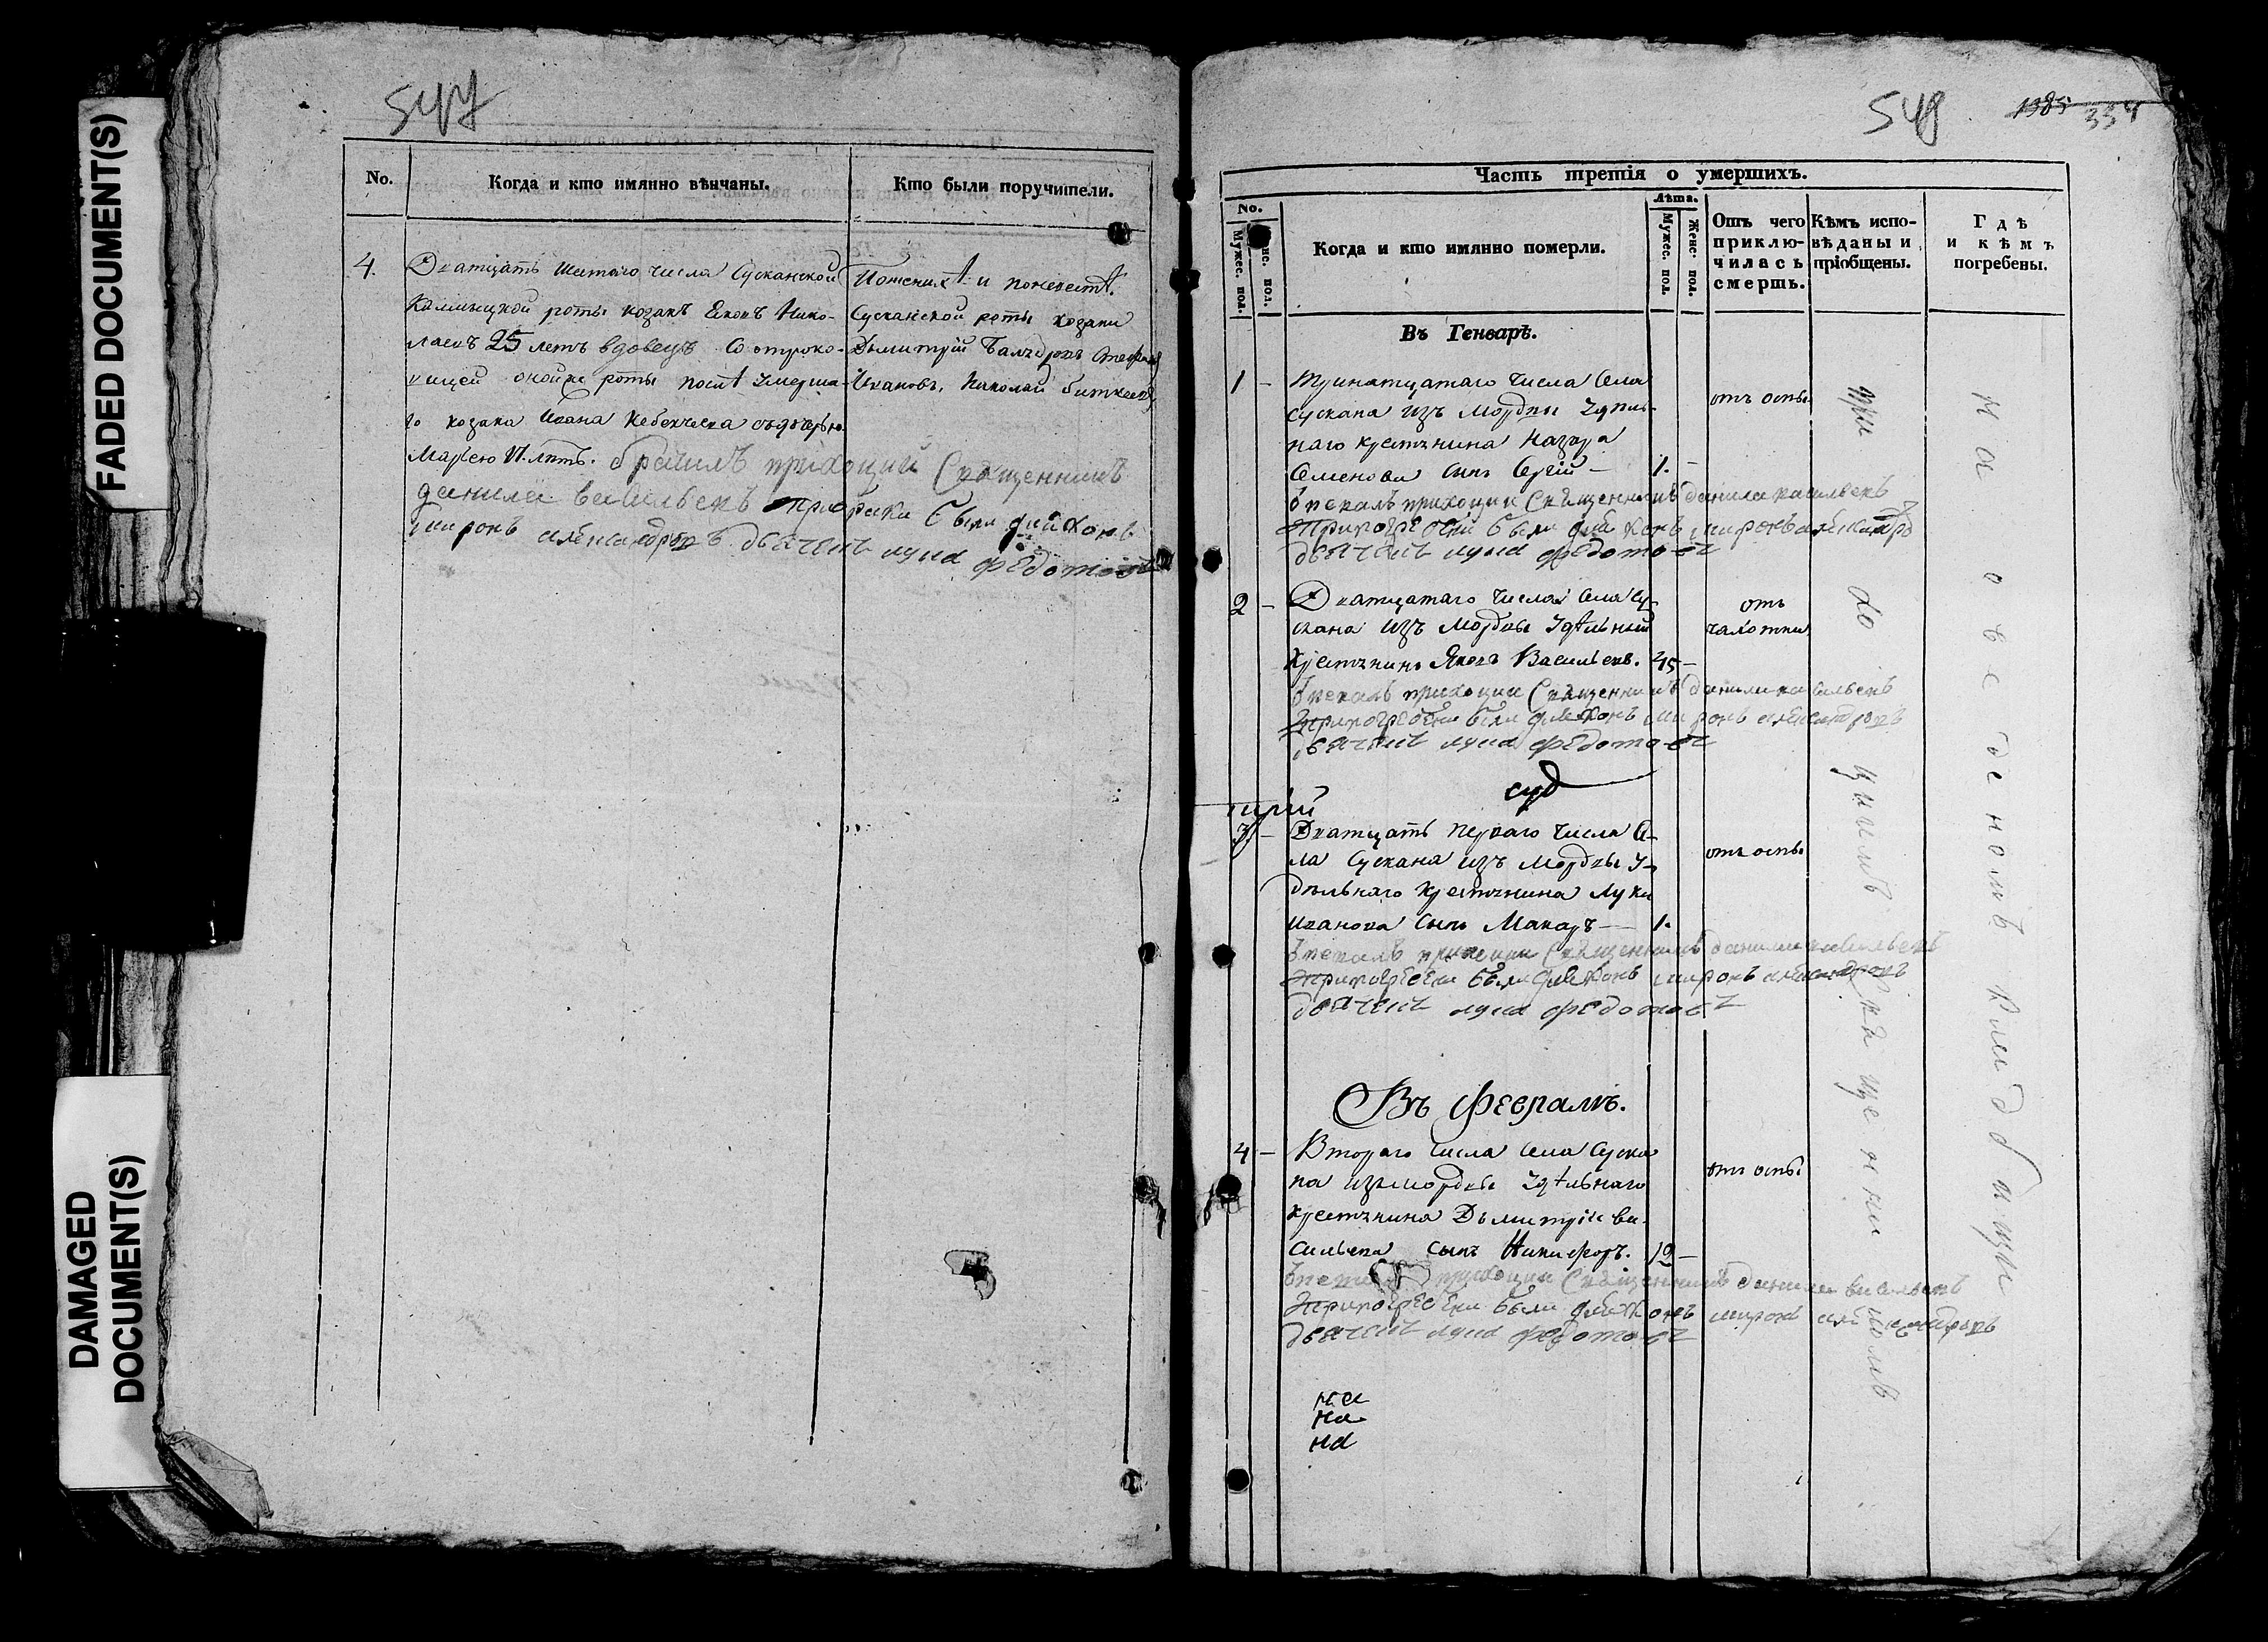 FADED DOCUMENT(S)
DAMAGED DOCUMENT(S)
547
No.
Когда и кто имянно вѣнчаны.
Кто были поручители.
4.
Дватцать шестаго числа Сусканской
Калмыцкой роты козакъ Яковъ Нико-
лаевъ 25 летъ вдовецъ Со отроко-
вицей оной же роты послѣ умерша-
го козака Ивана съ дочерью
Марьею
брачилъ приходцкий Священникъ
данила васильевъ при браки были диїаконъ
миронъ александровъ дьячекъ лука федотовъ
По женихѣ и по невестѣ
Сусканской роты козаки
Дьмитрїй
Ивановъ, Николай
548
1385
334
Часть третія о умершихъ.
No.
Мужес. пол.
Женс. пол.
Когда и кто имянно померли.
Лѣта.
Мужес. пол.
Женс. пол.
Отъ чего приклю-чилась смерть.
Кѣмъ испо-вѣданы и пріобщены.
Гдѣ и кѣмъ погребены.
Въ Генварѣ.
1 -
Тринатцатаго числа Села
Сускана изъ Мордвы Удѣль-
наго крестьянина Назара
Семенова сынъ Сергїй - 1. -
отъ оспы
Отпевалъ приходцки Священникъ данила васильевъ
При погребени были диїаконъ миронъ александро
дьячекъ лука федотовъ
2 -
Дватцатаго числа Села Су-
скана изъ Мордвы Удѣльный
Крестьянинъ Яковъ Васильевъ. 45 -
отъ
чахотки
Отпевалъ приходцки Священникъ данила васильевъ
При погребени были диїаконъ миронъ александровъ
дьячекъ лука федотовъ
3 -
Дватцать перваго числа Се-
ла Сускана изъ Мордвы У-
дѣльнаго крестьянина Луки
Иванова сынъ Макаръ - 1.
отъ оспы
Отпевалъ приходцки Священникъ данила васильевъ
При погребени были диїаконъ миронъ александровъ
дьячекъ лука федотовъ
Въ Февралѣ.
4 -
Втораго числа Села Суска-
на изъ Мордвы Удѣльнаго
крестьянина Дьмитрїя Ва-
сильева сынъ Никифоръ. 19 -
отъ оспы
приходцки Священникъ данила васильевъ
При погребени были диїаконъ миронъ александровъ
дьячекъ лука федотовъ
на
на
на
приходцкимъ Священникомъ
на отведеномъ кладбищи